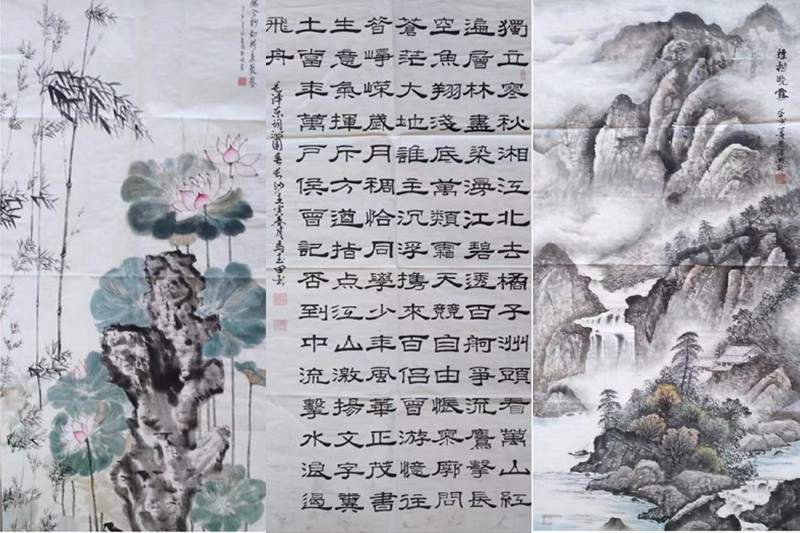 獨立寒秋湘江北去橘子洲頭看萬山紅
遍層林盡染漫江碧透百舸爭流鷹擊長
空魚翔淺底萬類霜天競自由悵寥廓問
蒼茫大地誰主沉浮攜來百侶曾游憶往
昔崢嶸歲月稠恰同學少年風華正茂書
生意氣揮斥方遒指点江山激揚文字糞
土當年萬戶侯曾記否到中流擊水浪遏
飛舟
毛泽东词沁園春長沙壬寅春月馬玉田书